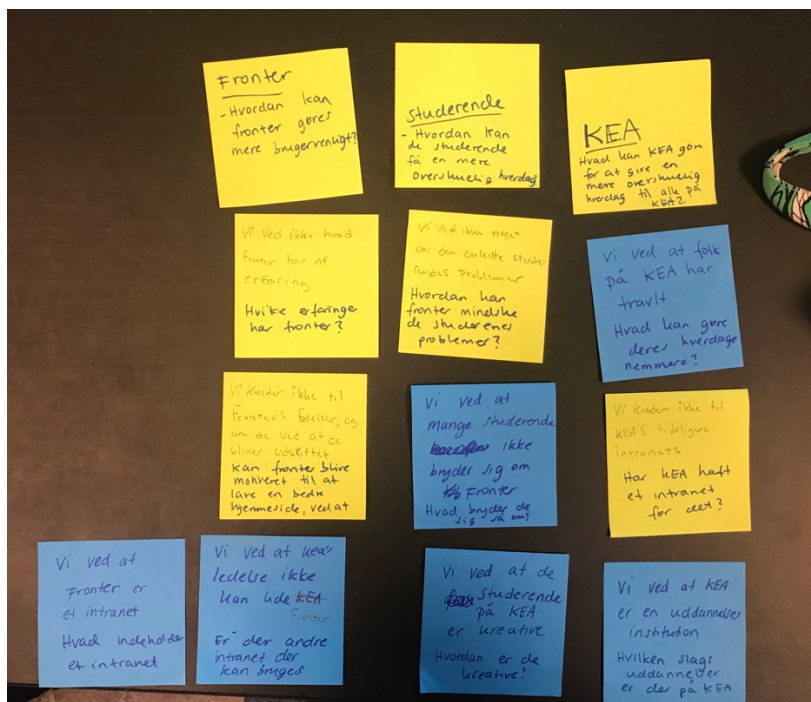 Fronter
- Hvordan kan
fronter gøres
mere brugervenligt?
Studerende
- Hvordan kan
de studerende
få en mere
overskuelig hverdag
KEA
Hvad kan KEA gøre
for at give en
mere overskuelig
hverdag til alle på
KEA?
Vi ved ikke hvad
Frontur har af
erfaring
Hvike erfaringer
har fronter?
Vi ved ikke noget
om den enkelte stude-
rendes problemer
Hvordan kan
fronter mindske
de studerenes
problemer?
Vi ved at folk
på KEA har
travlt
Hvad kan gøre
deres hverdage
nemmere?
Vi kender ikke til
Fronters følelser, og
om de ved at de
bliver udskiftet
kan fronter blive
motiveret til at
lave en bedre
hjemmeside, ved at
Vi ved at
mange studerende
ikke
bryder sig om
Fronter
Hvad bryder de
sig så om?
Vi kender ikke til
KEA'S tidligere
intranets
Har KEA haft
et intranet
før det?
Vi ved at
Fronter er
et intranet
Hvad indeholder
et intranet
Vi ved at kea's
ledelse ikke
kan lide KEA
Frontur
Er der andre
intranet der
kan bruges
Vi ved at de
Studerende
på KEA
er kreative
Hvordan er de
kreative?
Vi ved at KEA
er en uddannelses
institution
Hvilken slags
uddannelser
er der på KEA